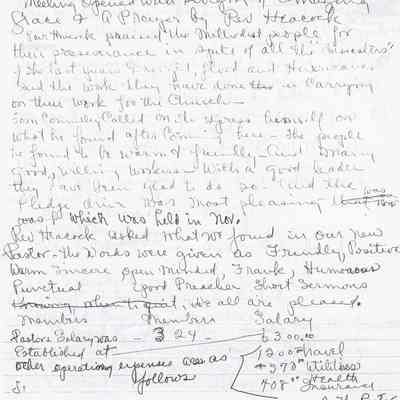 Meeting opened with singing of Amazing
Grace & A Prayer by Rev Heacock
Rev Heacock praised the Methodist people for
their perseverance in spite of all the "disasters"
of the last years Drought, flood and Hurricanes
and the work they have done in Carrying
on their work for the Church -
Tom Connelly Called on to express himself on
what he found after Coming here - The people
he found to be warm & friendly - and Many
Good, willing workers - With a good leader
they have been glad to do so - and the
Pledge drive was most pleasing that was
was p which was held in Nov.
Rev Heacock asked what we found in our new
Pastor - the Words were given as Friendly, Positive
Warm Sincere Open Minded, Frank, Humorous
Punctual Good Preacher Short Sermons
Knowing when to quit, We all are pleased.
Members Members Salary
Pastors Salary was - 324 - 6300.00
Established at
other operating expenses was as
follows
1200 Travel
+978 Utilities
408 Health
Insurance